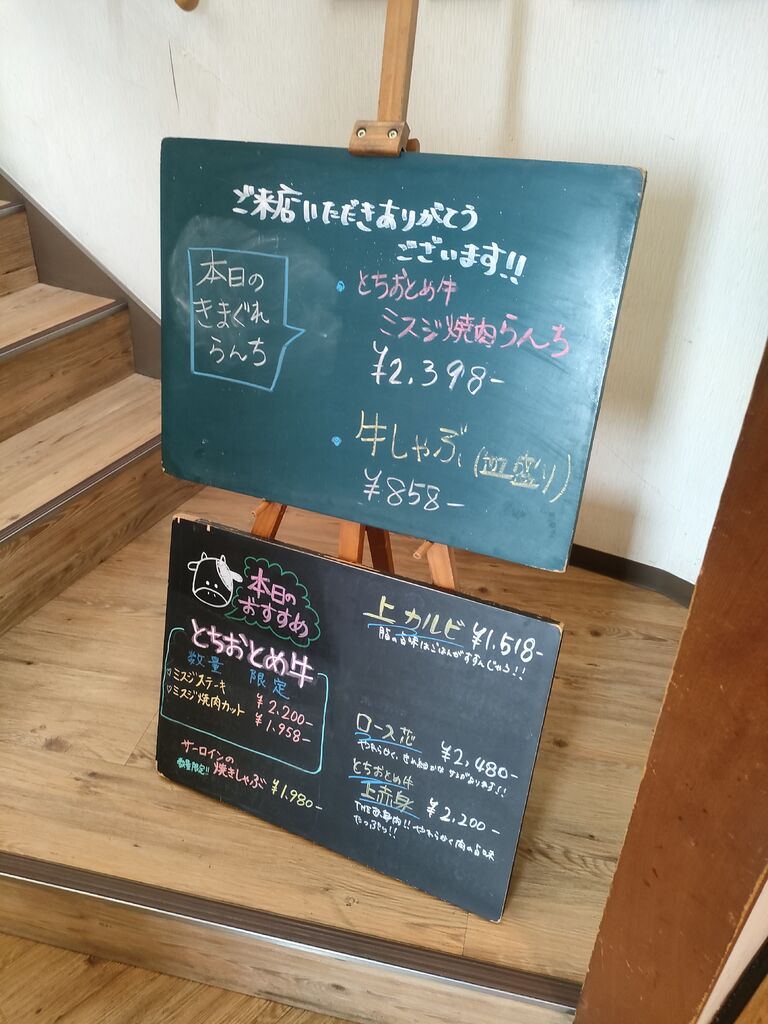 ご来店いただきありがとう
ございます!!
本日の
きまぐれ
らんち
・とちおとめ牛
ミスジ焼肉らんち
¥2.398-
・牛しゃぶ
¥858-
本日の
おすすめ
とちおとめ牛
数量 限定
ミスジステーキ ¥2.200-
ミスジ焼肉カット ¥1.958-
サーロインの
数量限定!! 焼きしゃぶ ¥1.980-
上カルビ ¥1.518-
脂の旨味はごはんがすすんじゃう!!
ロース芯 ¥2,480-
やわらかく、きめ細かな
とちおとめ牛
上赤身 ¥2,200-
THE赤身肉!! やわらかく肉の旨味
たっぷり!!